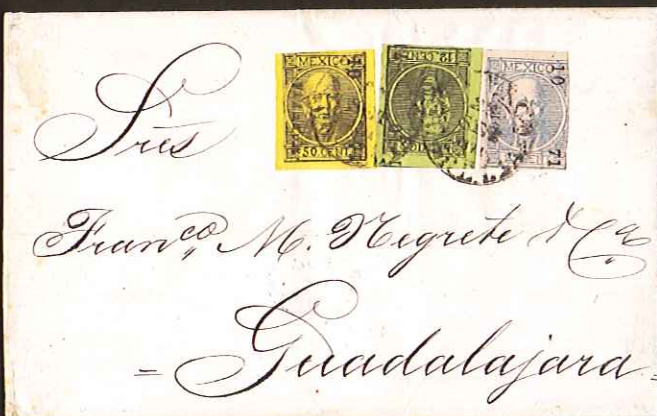 MEXICO
50 CENT
12 CENT
MEXICO
MEXICO
10
71
Sres
Franco M. Negrete & Ca
= Guadalajara =